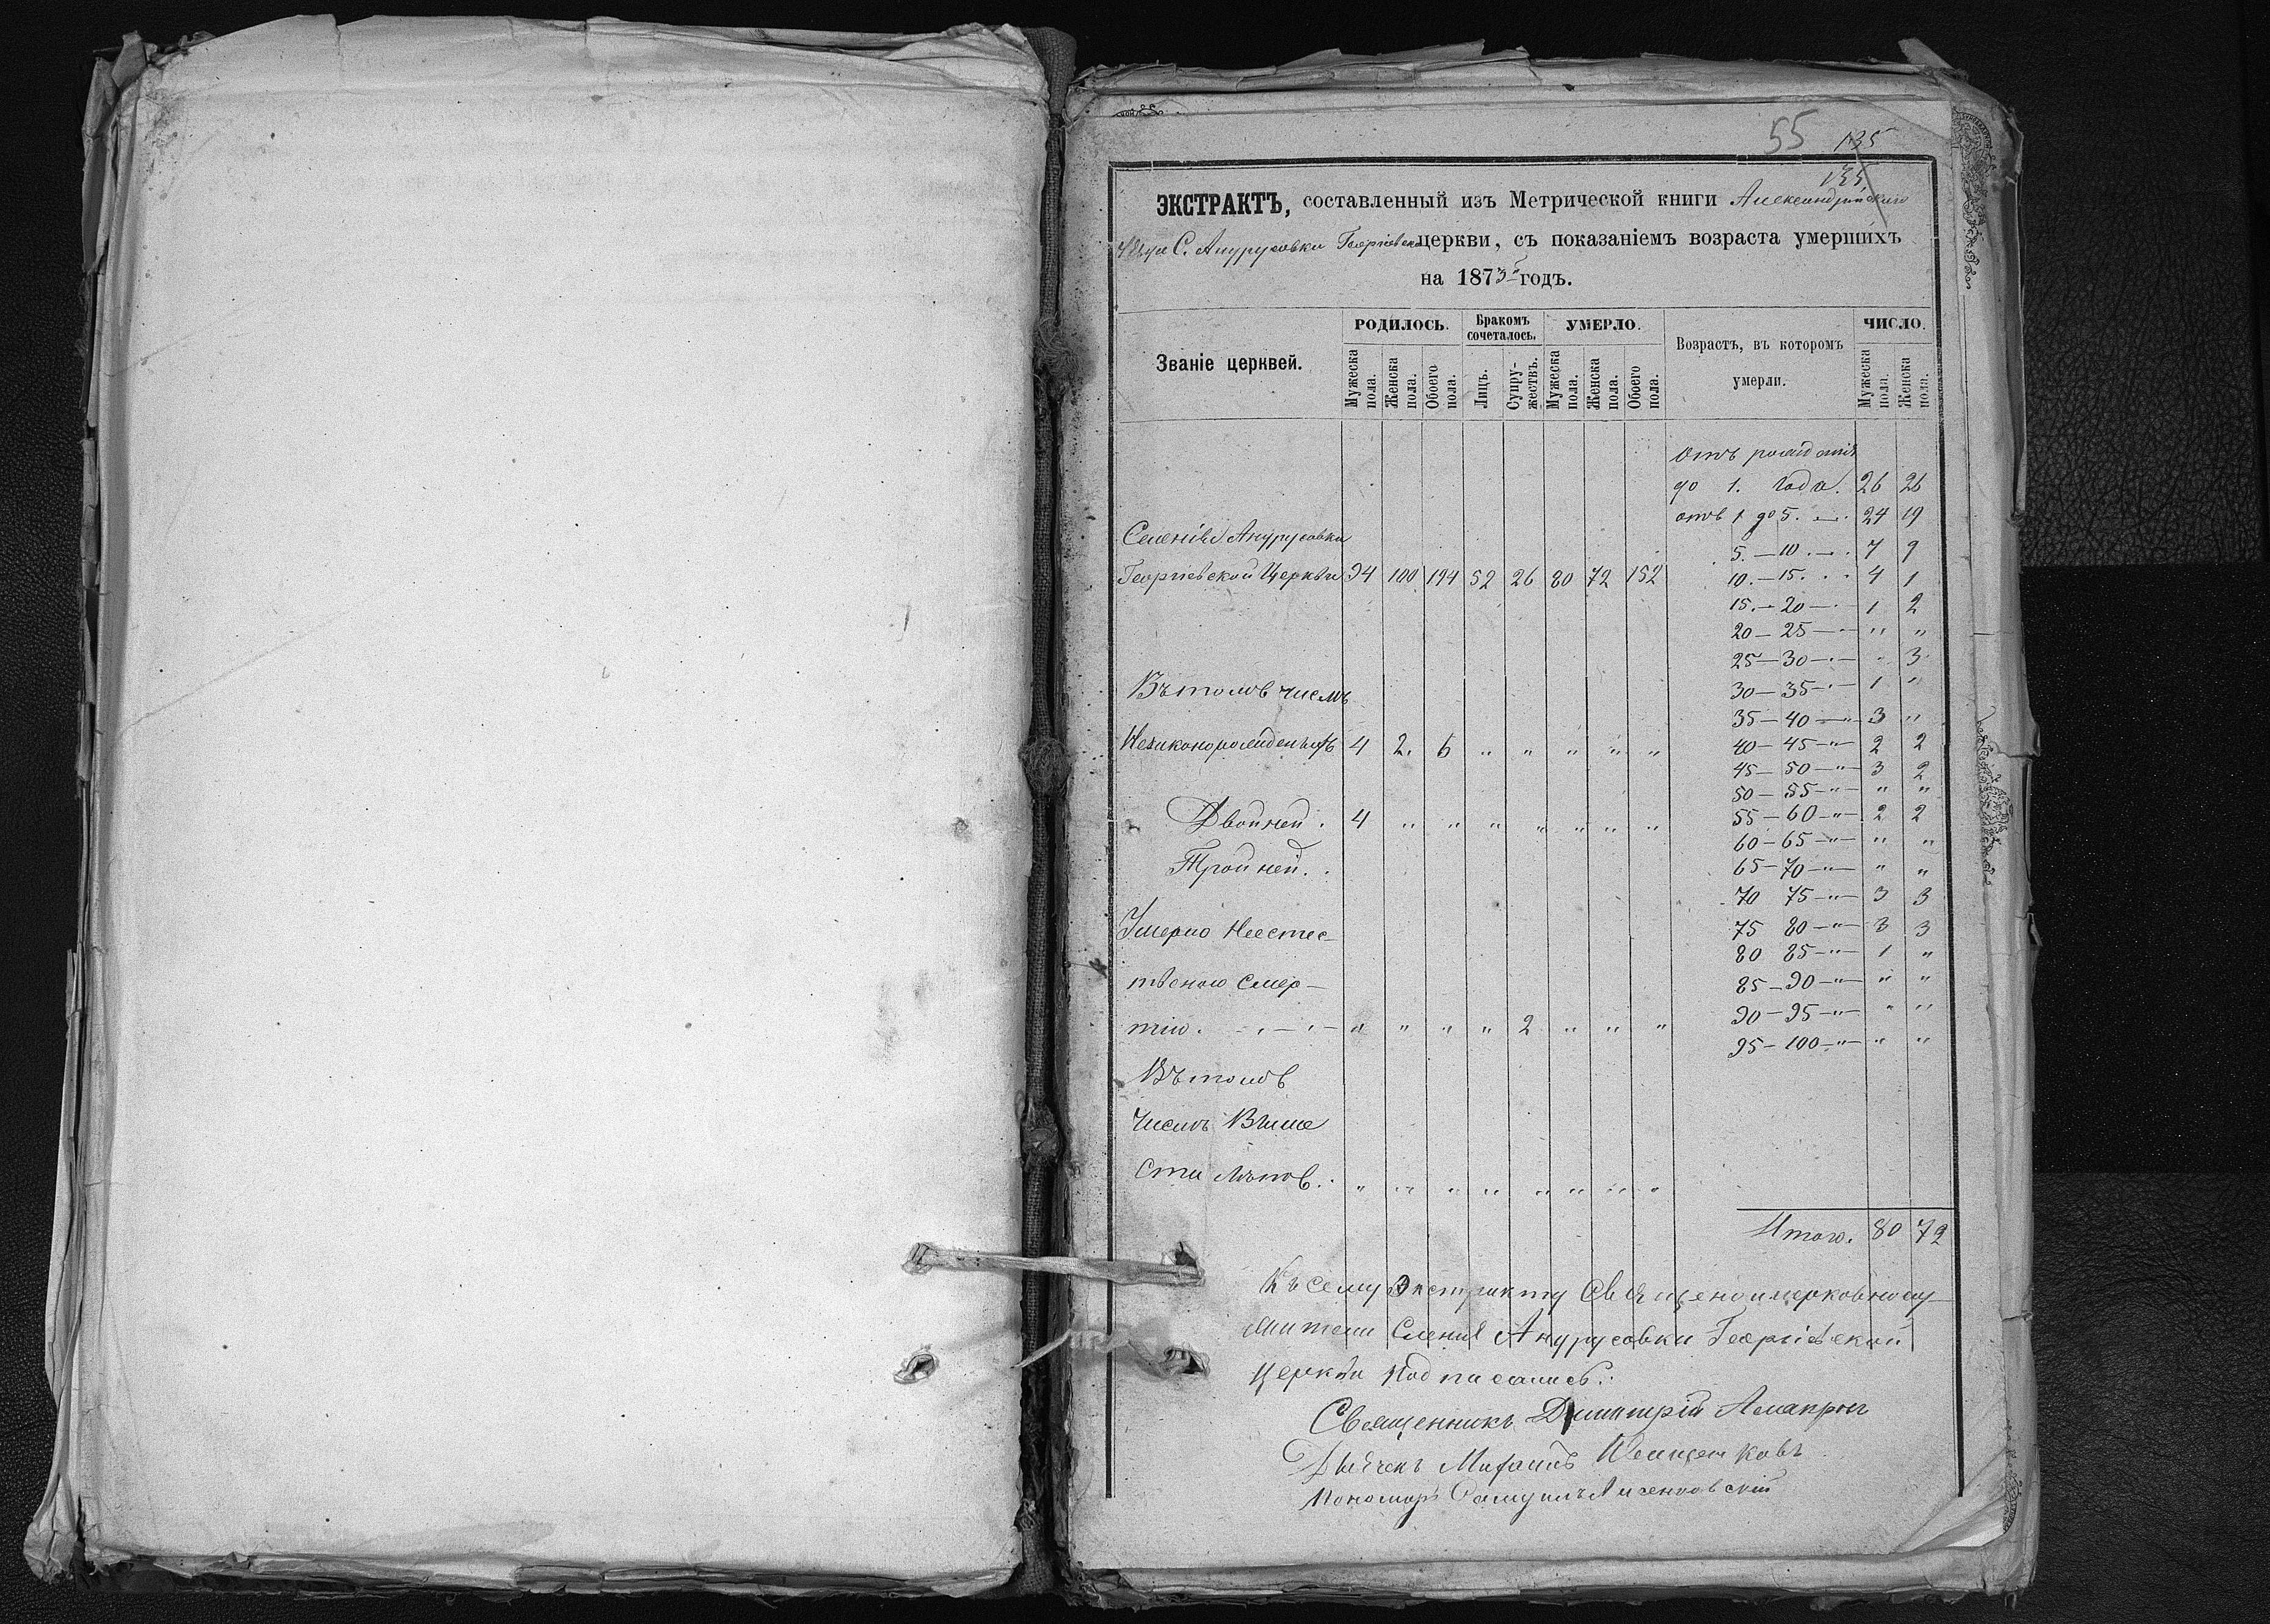 55
135
135
ЭКСТРАКТЪ, составленный изъ Метрической книги Александрійскаго
уѣзда С. Анурусовки Георгіевск церкви, съ показаніемъ возраста умершихъ
на 1873 годъ.
Званіе церквей.
РОДИЛОСЬ.
Мужеска пола.
Женска пола.
Обоего пола.
Бракомъ сочеталось.
Лицъ.
Супружествъ.
УМЕРЛО.
Мужеска пола.
Женска пола.
Обоего пола.
Возрастъ, въ которомъ умерли.
ЧИСЛО.
Мужеска пола.
Женска пола.
Отъ рожденія
до 1. Года. 26 26
отъ 1 до 5. 24 19
5. — 10. 7 9
10. — 15. 4 1
15. — 20 — 1 2
20 — 25 — " "
25 — 30 — " 3
30 — 35 — 1 "
35 — 40 — " — 3 "
40 — 45 — " — 2 2
45 — 50 — " — 3 2
50 — 55 — " — " "
55 — 60 — " — 2 2
60 — 65 — " — " "
65 — 70 — " — " "
70 75 — " — 3 3
75 80 — " — 3 3
80 85 — " — 1 "
85 — 90 — " — " "
90 — 95 — " — " "
95 — 100 — " — " "
Итого. 80 72
Селенія Анурусовки
Георгіевской Церкви 94 100 194 52 26 80 72 152
Въ томъ числѣ
Незаконорожденныхъ 4 2. 6 " " " " "
Двойней. 4 " " " " " " "
Тройней. .
Умерло Неестес-
твеною смер-
тію. " " " " 2 " " "
Въ томъ
Числѣ Выше
Ста Лѣтъ. " " " " " " " "
Къ сему Экстракту Священоцерковному
жители Селенія Анурусовки Георгіевской
Церкви Подписались:
Священникъ Димитрій
Дьячекъ Михаилъ
Пономарь Самуилъ